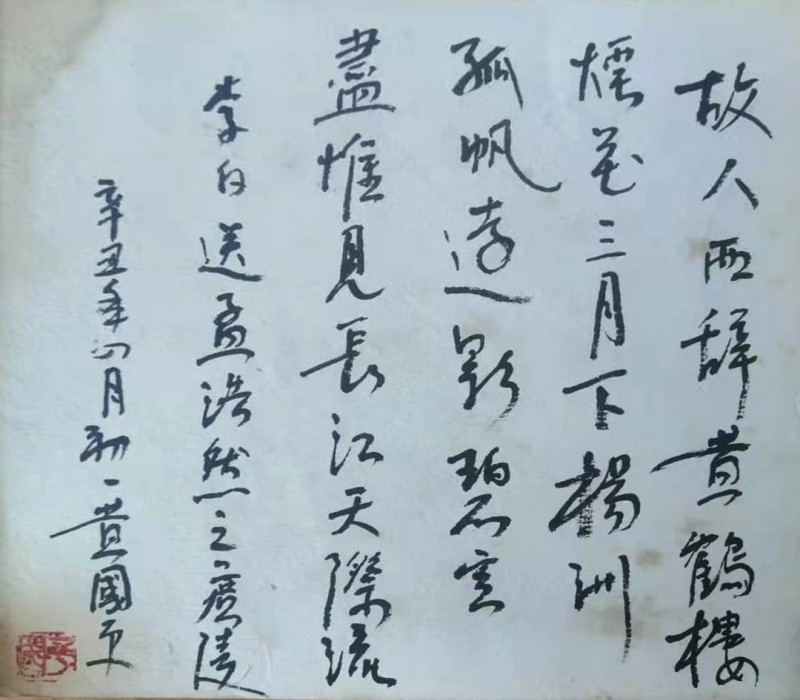 故人西辞黄鶴樓
煙花三月下揚洲
孤帆遠影碧空
盡惟見長江天際流
李白送孟浩然之廣陵
辛丑年四月初一黄國平